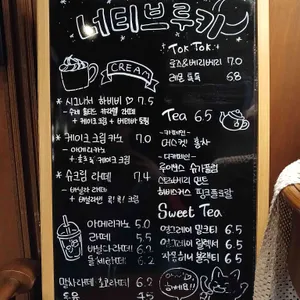 너티브루키
CREAM
* 시그니처 하비비 ♡ 7.5
+ 케이크 크림 + 
* 케이크 크림 카노 7.0
- 아메리카노
+ 케이크 크림
* 슈크림 라떼 7.4
- 바닐라 라떼
아메리카노 5.0
라떼 5.5
바닐라라떼 6.0
돌체라떼 6.2
말차라떼
TOK TOK
로즈&베리베리 7.0
레몬 톡톡 6.8
Tea 6.5
- 카페인 -
머스켓 홍차
- 디카페인 -
루이보스 슈가플럼
스트로베리 민트
히비스커스 핑크플로랄
Sweet Tea
얼그레이 밀크티 6.5
얼그레이 밀렉서 6.5
자몽허니 블랙티 6.5